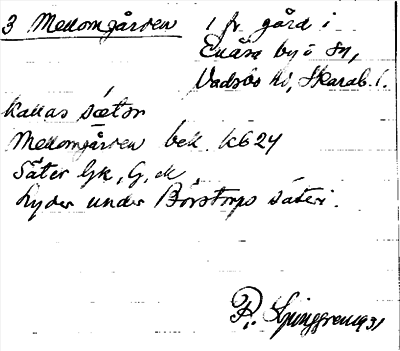 3 Mellomgården 1 fr. gård i
Enåsa by o sn,
Vadsbo hd, Skarab. l.
kallas sætǝr
Mellomgården bek. kb 24
Säter Gk, G, M.
Lyder under Börstorps säteri.
R. Ljunggren 1931